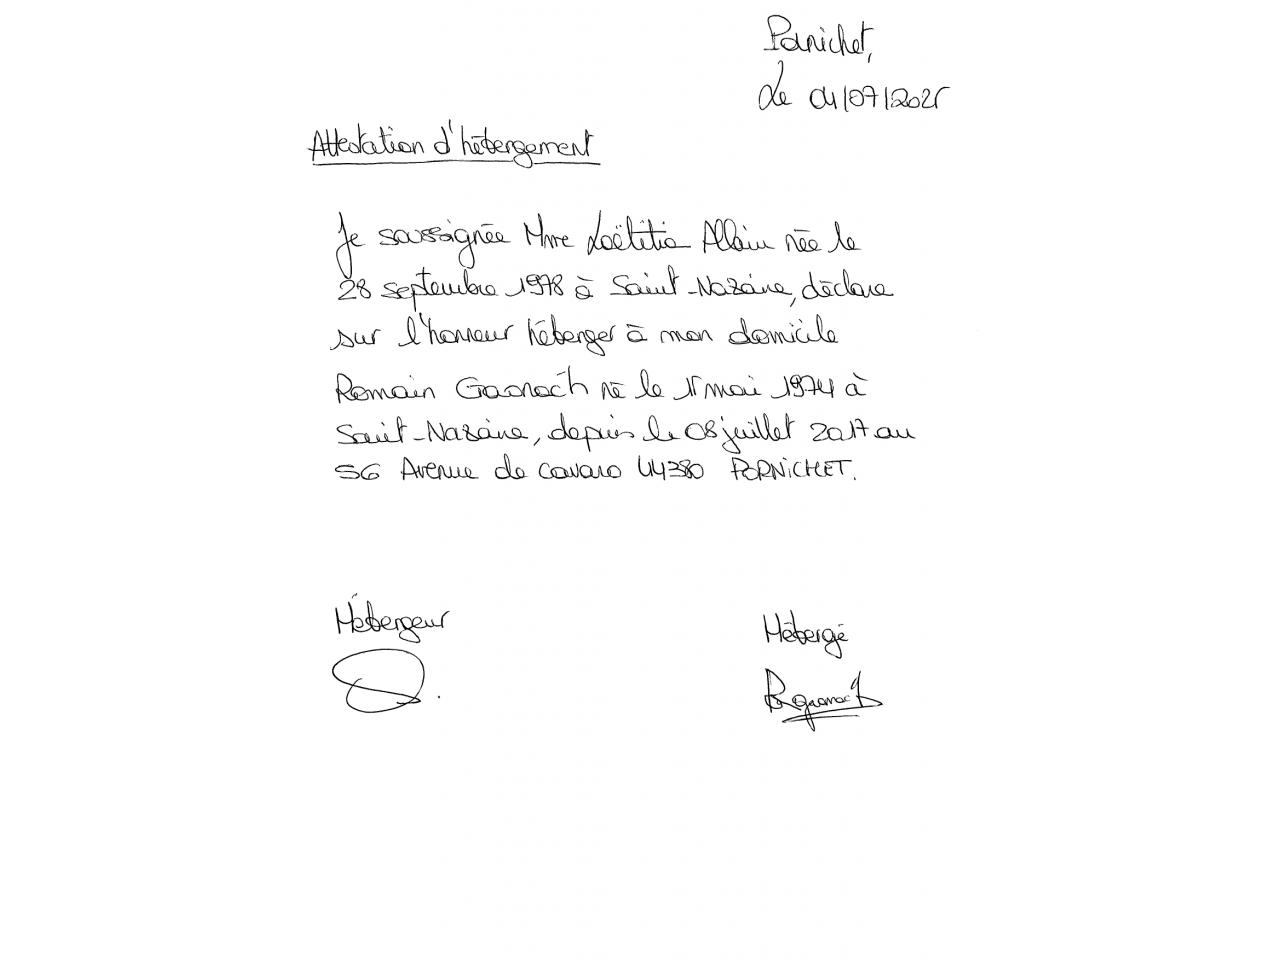 Pornichet,
Le 04/07/2025
Attestation d'hébergement
Je soussignée Mme Laëtitia Allain née le
28 septembre 1978 à Saint-Nazaire, déclare
sur l'honneur héberger à mon domicile
Romain Gaonach né le 11 mai 1974 à
Saint-Nazaire, depuis le 08 juillet 2017 au
56 Avenue de 44380 PORNICHET.
Hébergeur
Hébergé